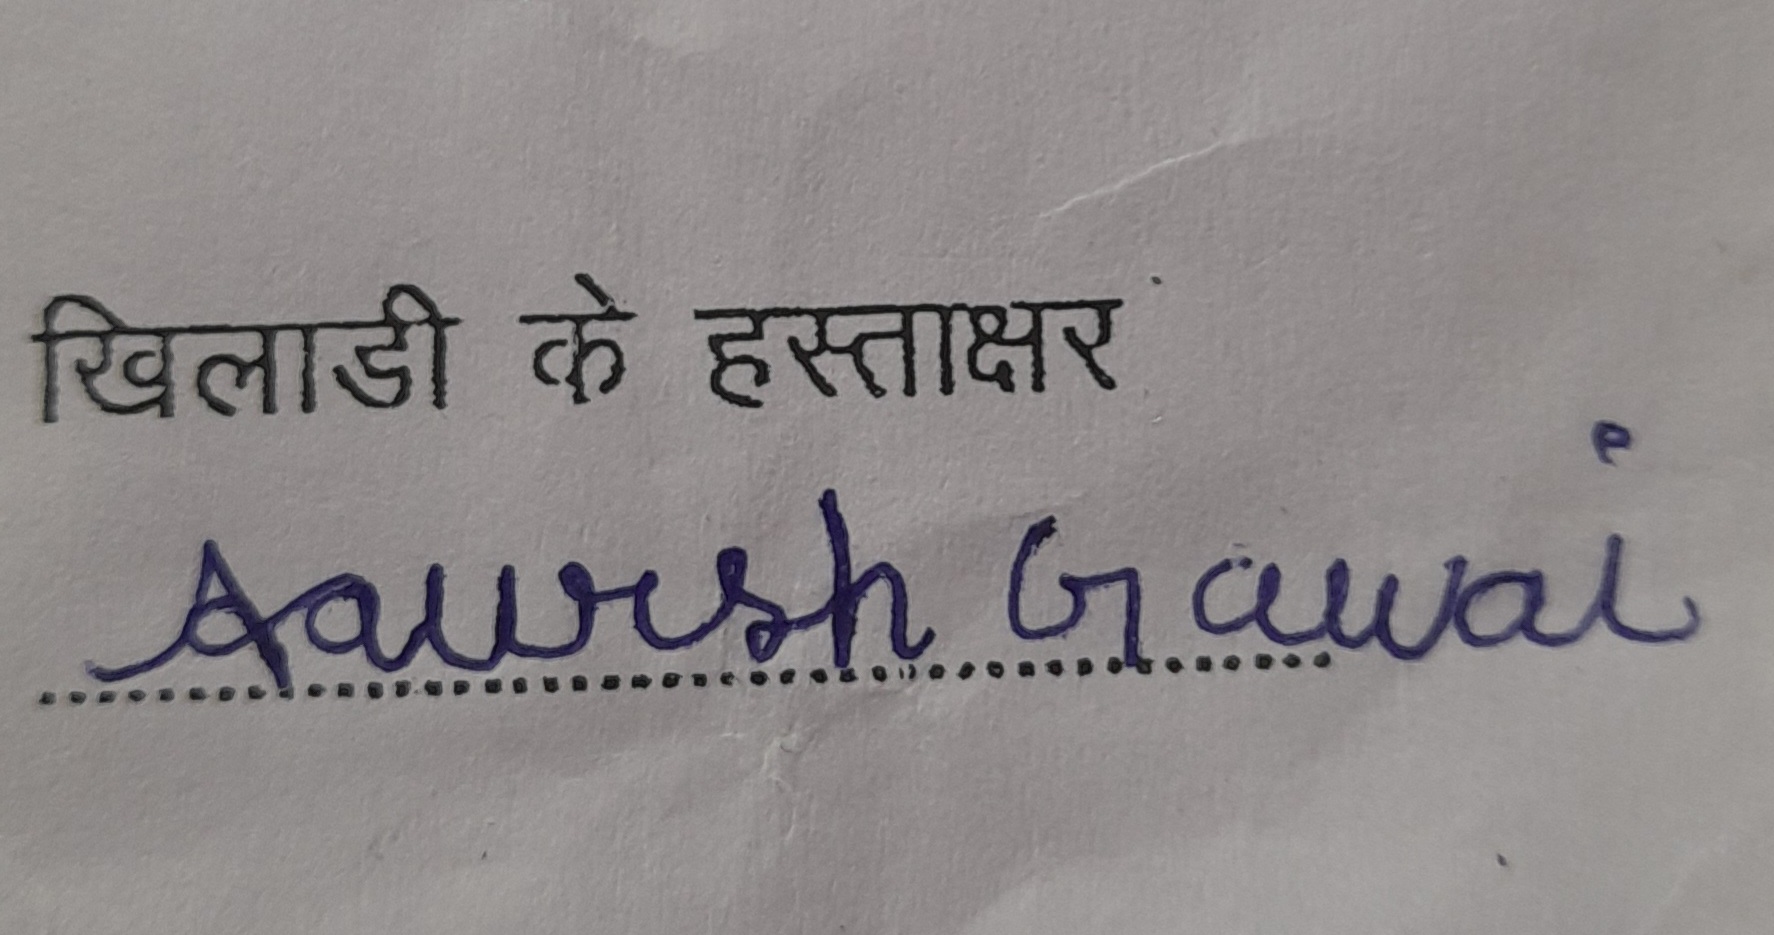 खिलाडी के हस्ताक्षर
Aaursh Gawai